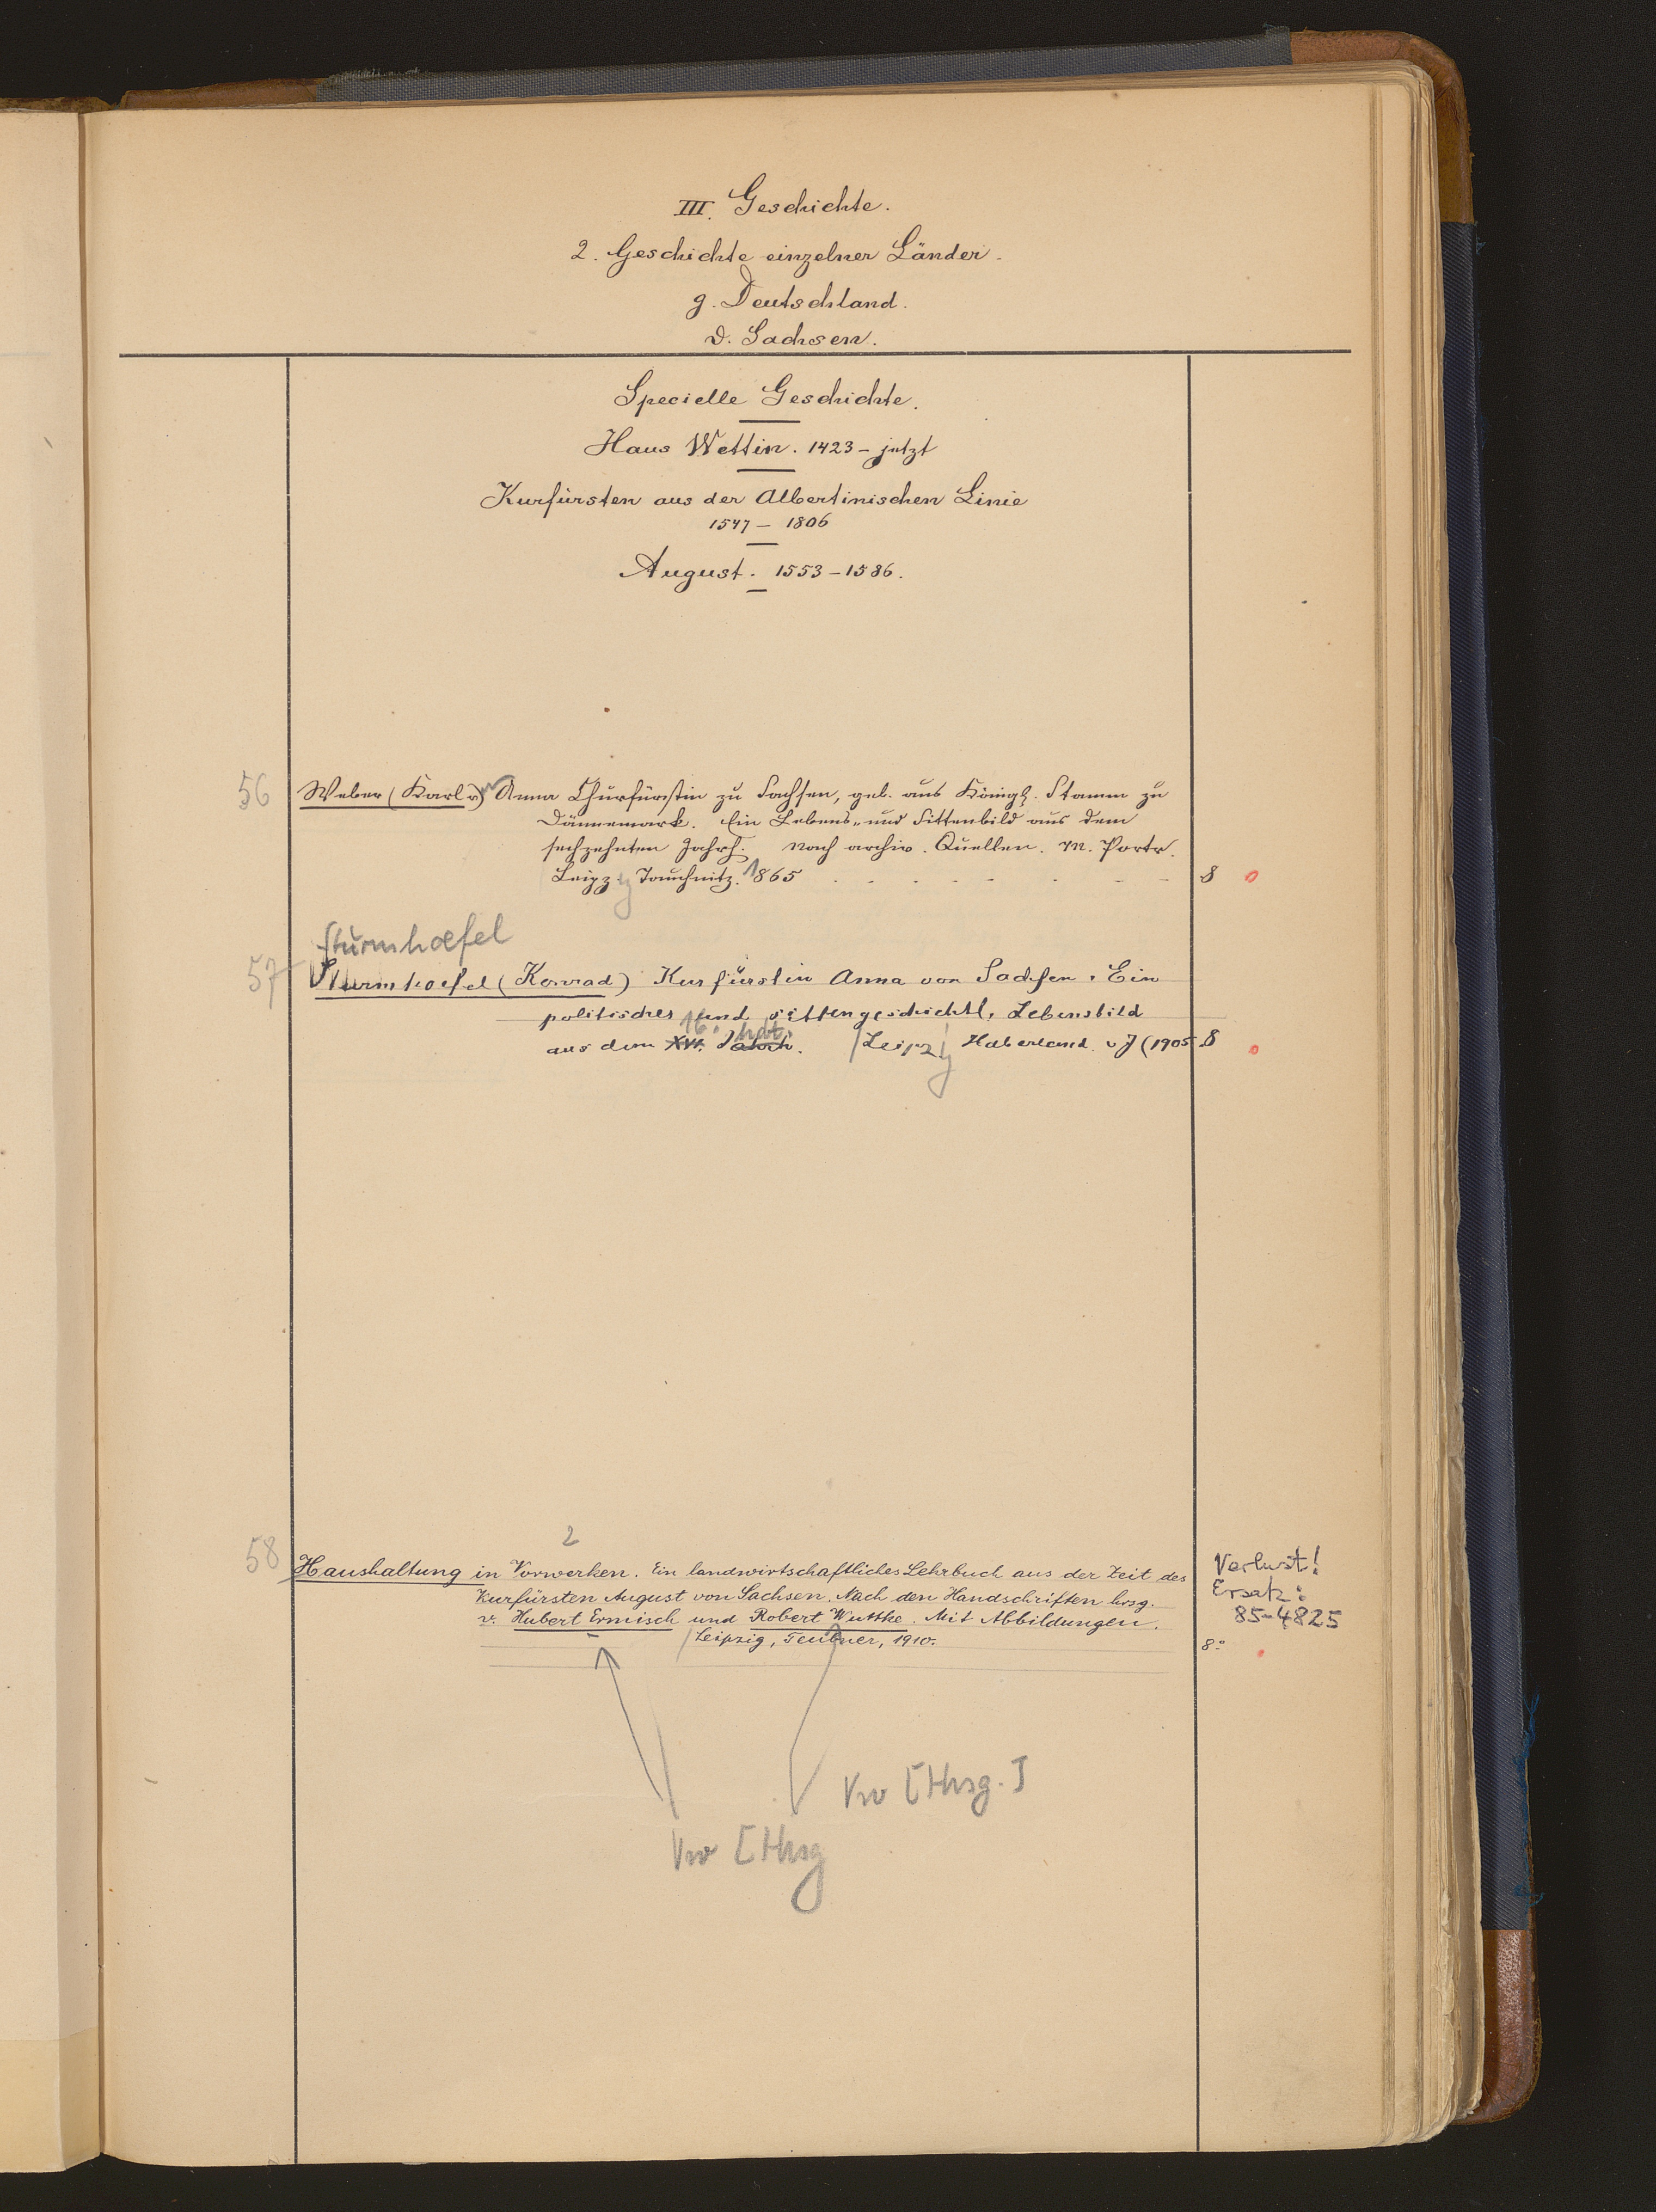 III. Geschichte.
2. Geschichte einzelner Länder.
g. Deutschland.
d. Sachsen.
Specielle Geschichte.
Haus Wettin. 1423 - jetzt
Kurfürsten aus der Albertinischen Linie
1547 - 1806
August. 1553 - 1586.
56 Weber (Karl v) Anna Churfürstin zu Sachsen, geb. aus Königl. Stamm zu
Dännemark. Ein Lebens- und Sittenbild aus dem
sechzehnten Jahrh. Nach archiv. Quellen. M. Portr.
Leipzig Tauchnitz. 1865 8
Sturmhoefel
57 Sturmhoefel (Konrad) Kurfürstin Anna von Sachsen. Ein
politisches und sittengeschichtl. Lebensbild
16. hdt.
aus dem XVI. Jahrh. Leipzig Haberland. o J (1905 8
2
58 Haushaltung in Vorwerken. Ein landwirtschaftliches Lehrbuch aus der Zeit des
Kurfürsten August von Sachsen. Nach den Handschriften hrsg.
v. Hubert Ermisch und Robert Wuttke. Mit Abbildungen.
Leipzig, Teubner, 1910. 8°
Verlust!
Ersatz:
85-4825
Vw [Hrsg.]
Vw [Hrsg